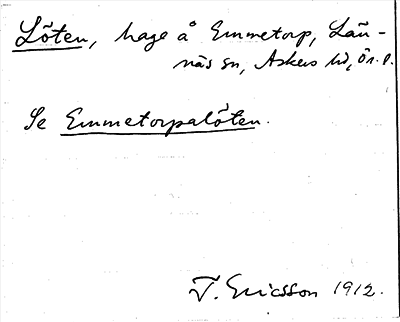 Löten, hage å Emmetorp, Län-
näs sn, Askers hd, Ör. l.
Se Emmetorpalöten.
T. Ericsson 1912.